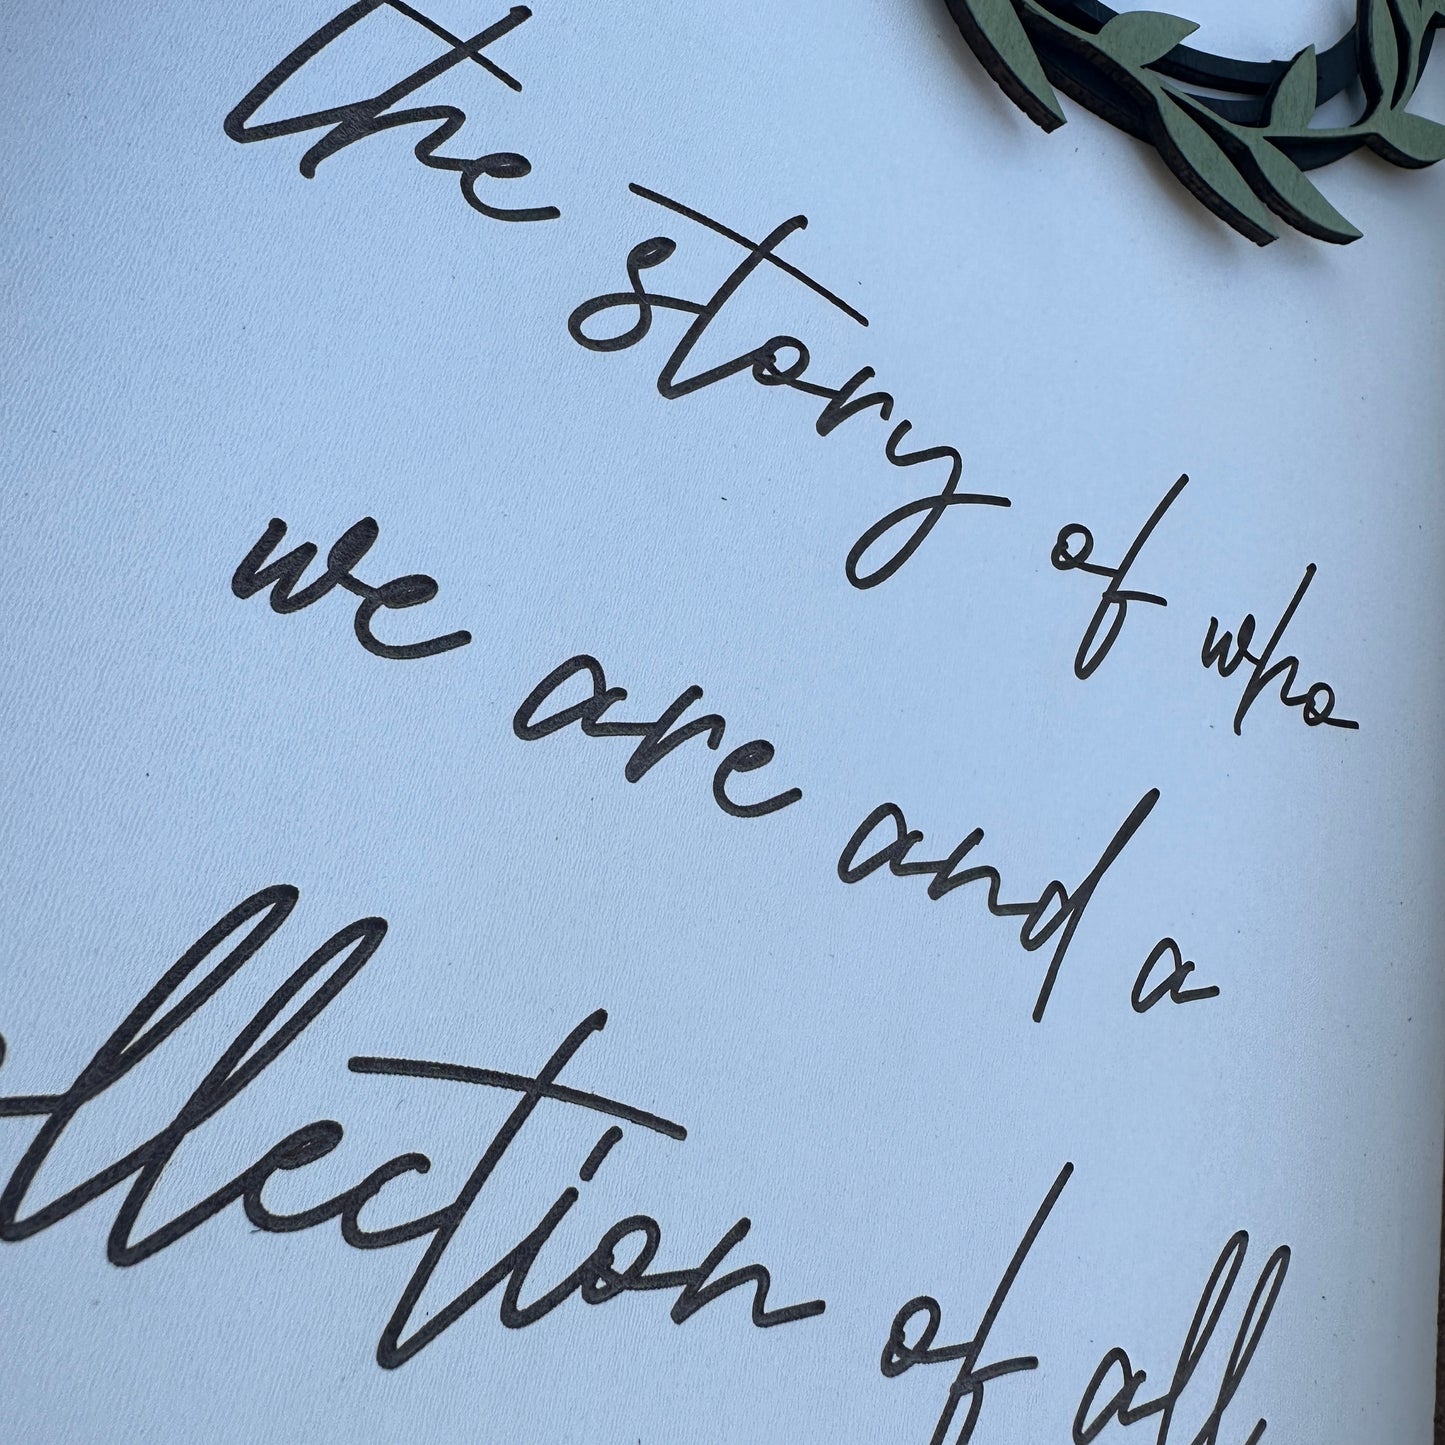 the story of who
we are and a
ollection of all